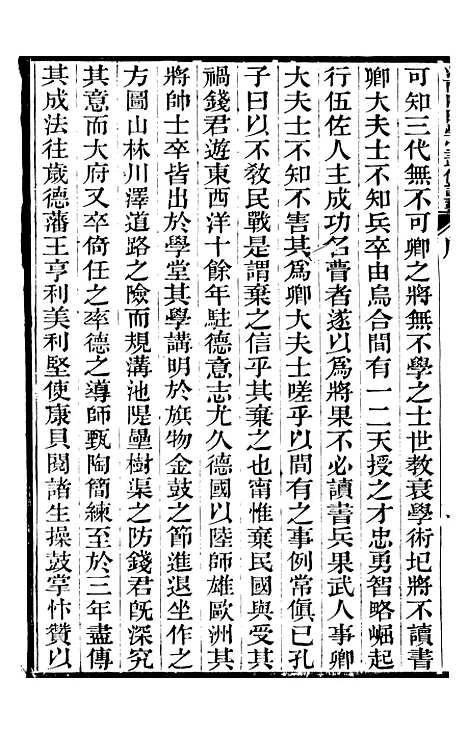 可知三代無不可卿之將無不學之士世教衰學術圮將不讀書
卿大夫士不知兵卒由烏合間有一二天授之才忠勇智略崛起
行伍佐人主成功名曹者遂以爲將果不必讀書兵果武人事卿
大夫士不知不害其爲卿大夫士嗟乎以間有之事例常傎已孔
子曰以不敎民戰是謂棄之信乎其棄之也甯惟棄民國與受其
禍錢君遊東西洋十餘年駐德意志尤久德國以陸師雄歐洲其
將帥士卒皆出於學堂其學講明於旗物金鼓之節進退坐作之
方圖山林川澤道路之險而規溝池隄壘樹渠之防錢君旣深究
其意而大府又卒倚任之率德之導師甄陶簡練至於三年盡傳
其成法往歲德藩王亨利美利堅使康貝閱諸生操鼓掌忭贊以